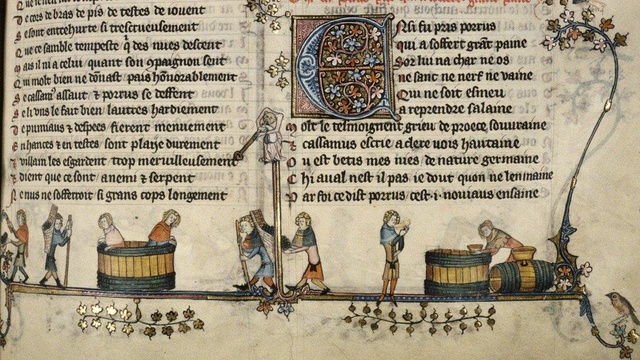 De cors de bras de pis de testes de iouent
Se sont entrehurte si trescrueusement
Que ce samble tempeste q̃ des nues descent
Mais il ni a celui quant son ꝯpaignon sent
Qui molt bien ne donast pais honorablement
Se cassamꝰ assaut & porrus se deffent
le fait bien lautres hardiement
& despees fierent menuement
hances & en testes sont plaije durement
villain les esgardent trop meruilleusement
dient que ce sont anemi & serpent
Ne nus ne soffreroit si grans cops longement
ENsi fu pris porrus
qui a soffert grãt paine
Sor lui na char ne os
ne sanc ne nerf ne vaine
Qui ne soit esmeu
a reprendre salaine
Molt le tesmoignent grieu de proece souuraine
Cassamus escrie a clere vois hautaine
Ou est betis mes nies de nature germaine
Chi aual nest il pas ie dout quon ne lenmaine
Par foi ce dist porrus cest .i. nouiaus ensaine